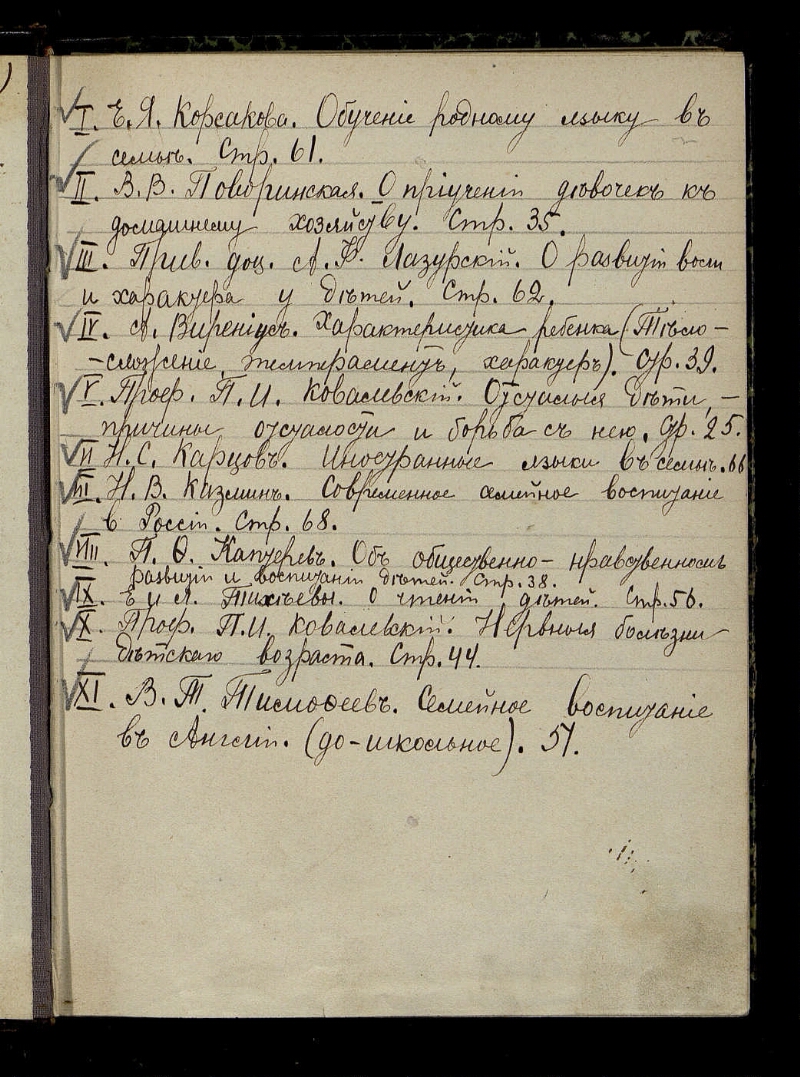 I. Е. Я. Корсакова. Обученіе родному языку въ
семьѣ. Стр. 61.
II. В. В. Поворинская. О пріученіи дѣвочекъ къ
домашнему хозяйству. Стр. 35.
III. Прив. доц. А. Ф. Лазурскій. О развитіи воли
и характера у дѣтей. Стр. 62.
IV. А. Виреніусъ. Характеристика ребенка (Тѣло-
-сложеніе, темпераментъ, характеръ). Стр. 39.
V. Проф. П. И. Ковалевскій. Отсталыя дѣти, -
причины отсталости и борьба съ нею. Стр. 25.
VI Н. С. Карцовъ. Иностранные языки въ семьѣ. 66
VII. Н. В. Казминъ. Современное семейное воспитаніе
в Россіи. Стр. 68.
VIII. П. Ѳ. Каптеревъ. Объ общественно-нравственномъ
развитіи и воспитаніи дѣтей. Стр. 38.
IX. Е и А. Тихѣевы. О чтеніи дѣтей. Стр. 56.
X. Проф. П. И. Ковалевскій. Нервныя болѣзни
дѣтскаго возраста. Стр. 44.
XI. В. Т. Тимоѳеевъ. Семейное воспитаніе
въ Англіи. (до-школьное). 51.